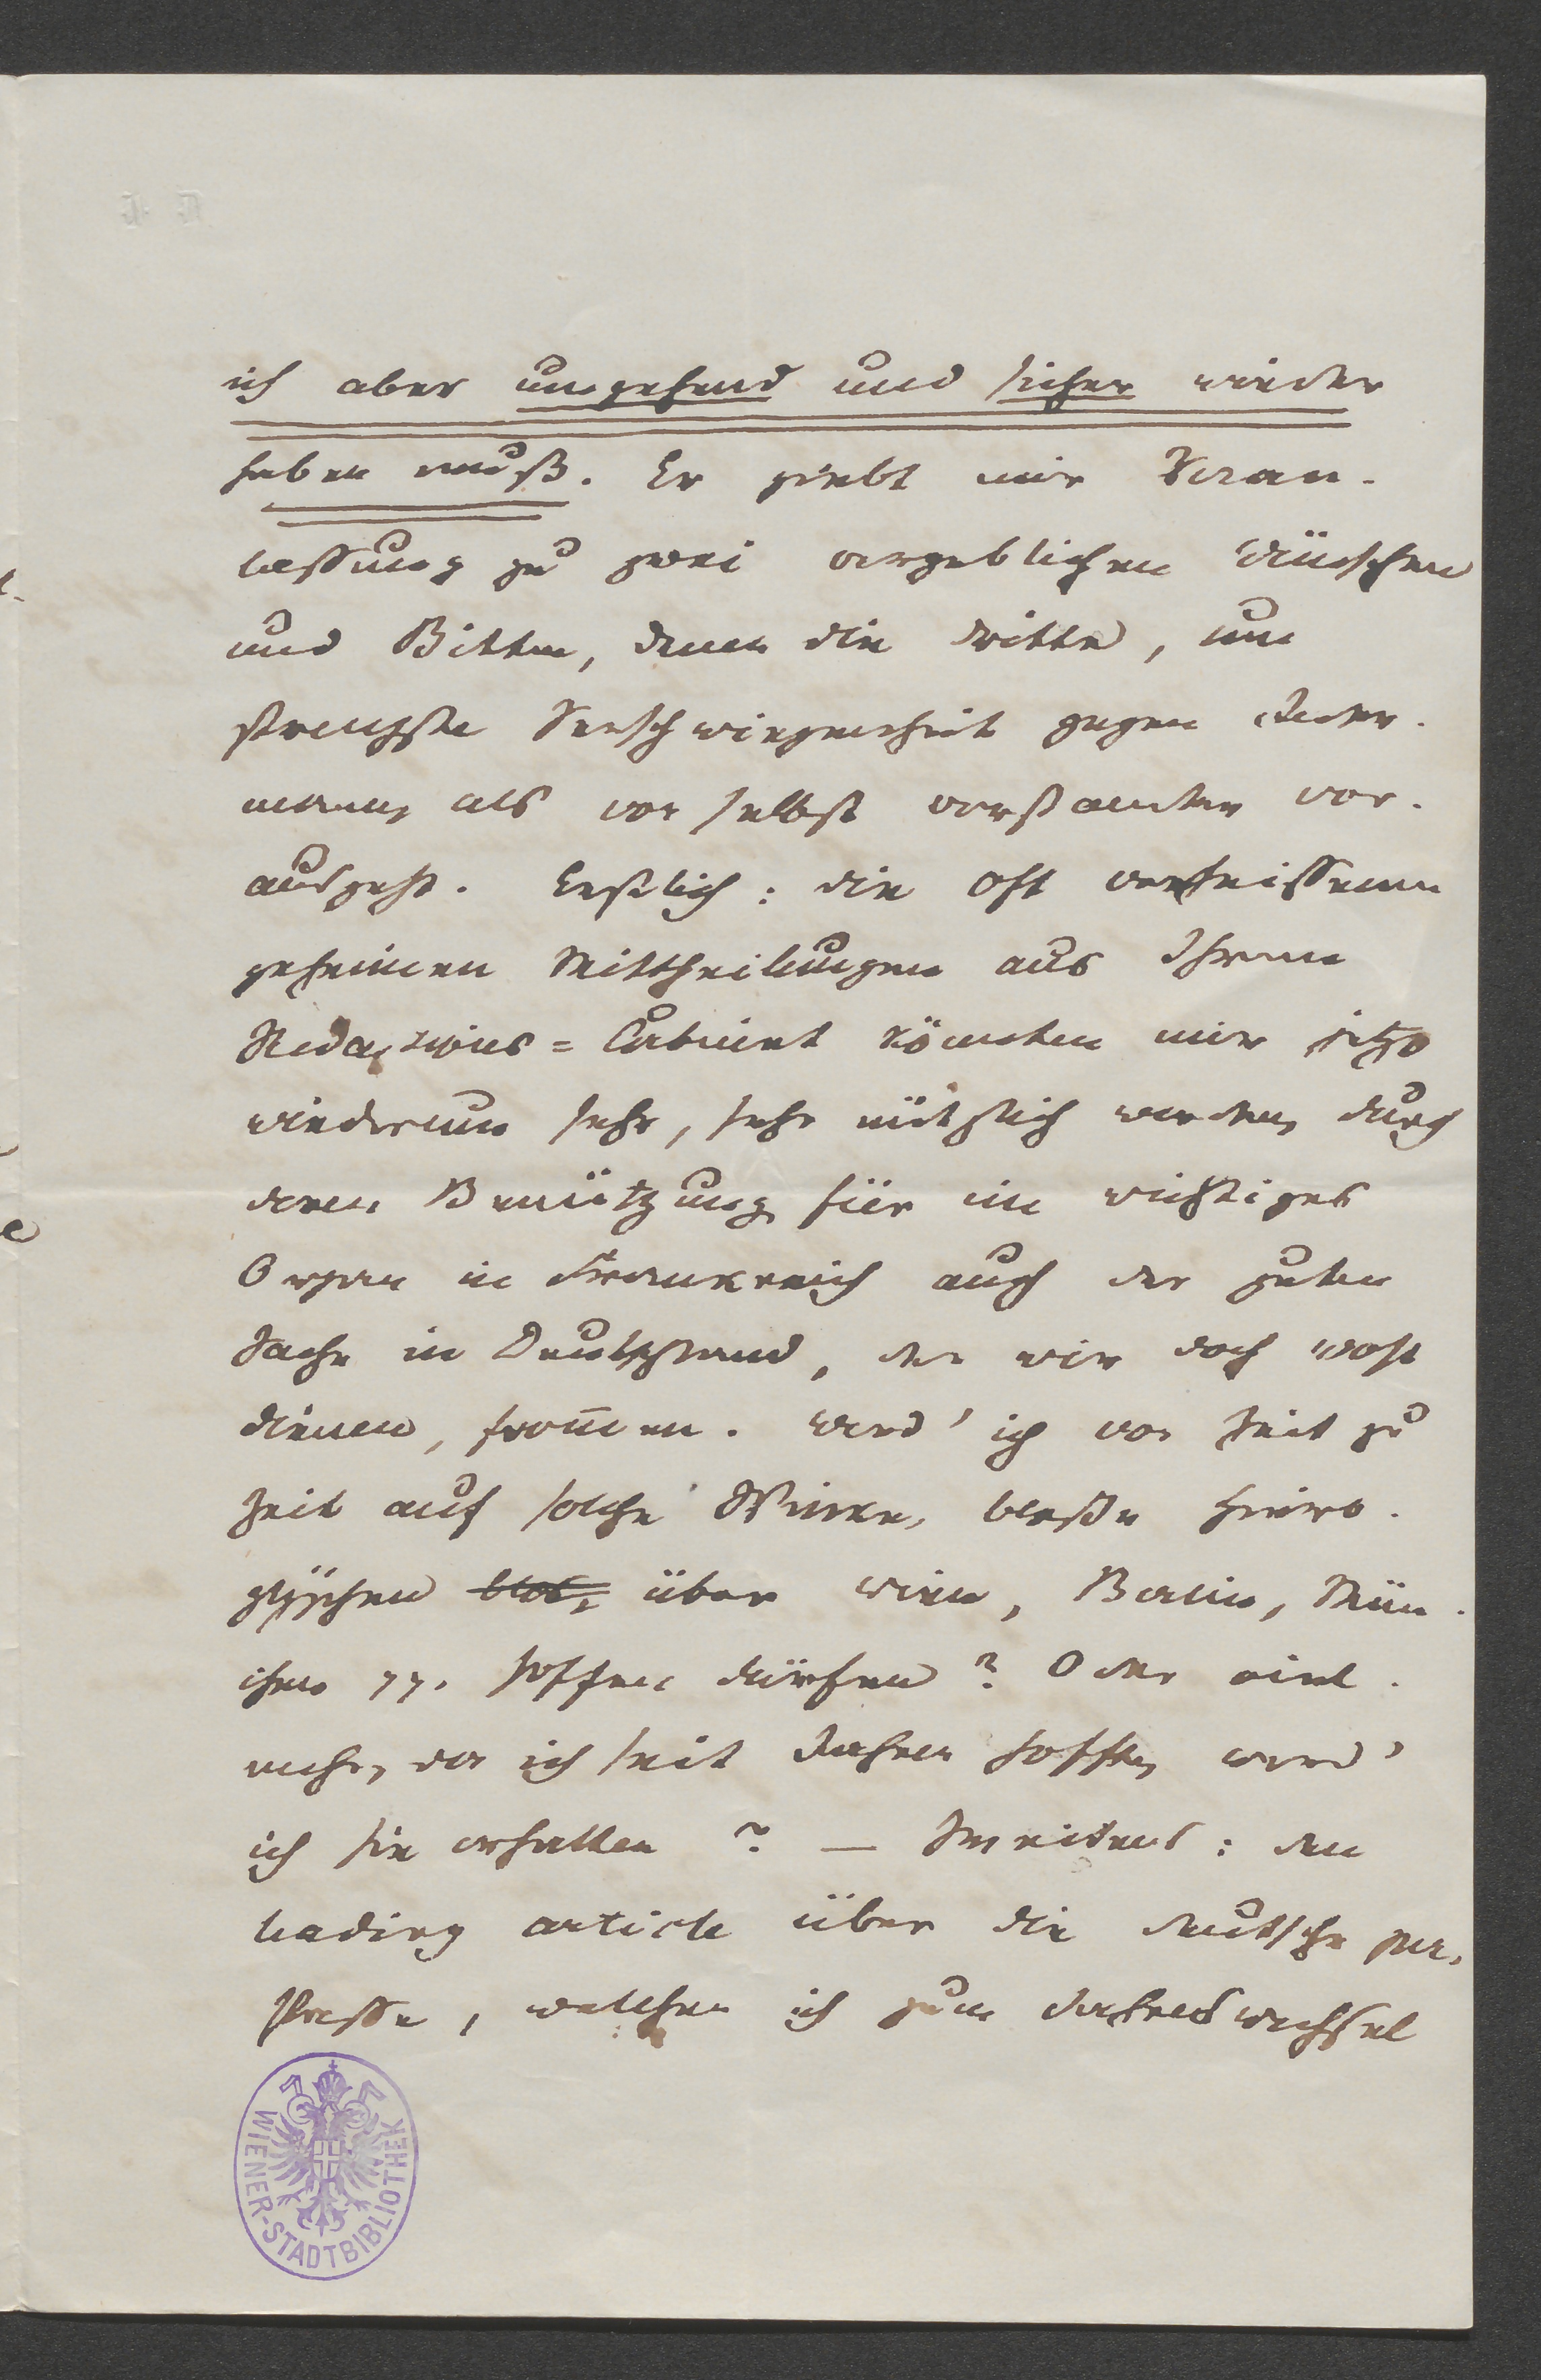 ich aber umgehend und sicher wieder
haben muß. Er giebt mir Veran-
lassung zu zwei vergeblichen Wünschen
und Bitten, denen die dritte, um
strengste Verschwiegenheit gegen Jeder-
mann, als von selbst verstanden vor-
ausgeht. Erstlich: die oft verheissenen
geheimen Mittheilungen aus Ihrem
Redactions=Cabinet könnten mir jetzt
wiederum sehr, sehr nützlich werden, durch
deren Benützung für ein wichtiges
Organ in Frankreich auch der guten
Sache in Deutschland, der wir doch wohl
dienen, frommen. Werd' ich von Zeit zu
Zeit auf solche Winke, bloße Hiero-
glyphen blos, über Wien, Berlin, Mün-
chen pp. hoffen dürfen? Oder viel-
mehr, da ich seit Jahren hoffte, werd'
ich sie erhalten? — Zweitens: den
leading article über die deutsche per.
Presse, welchen ich zum Jahreswechsel
WIENER-STADTBIBLIOTHEK